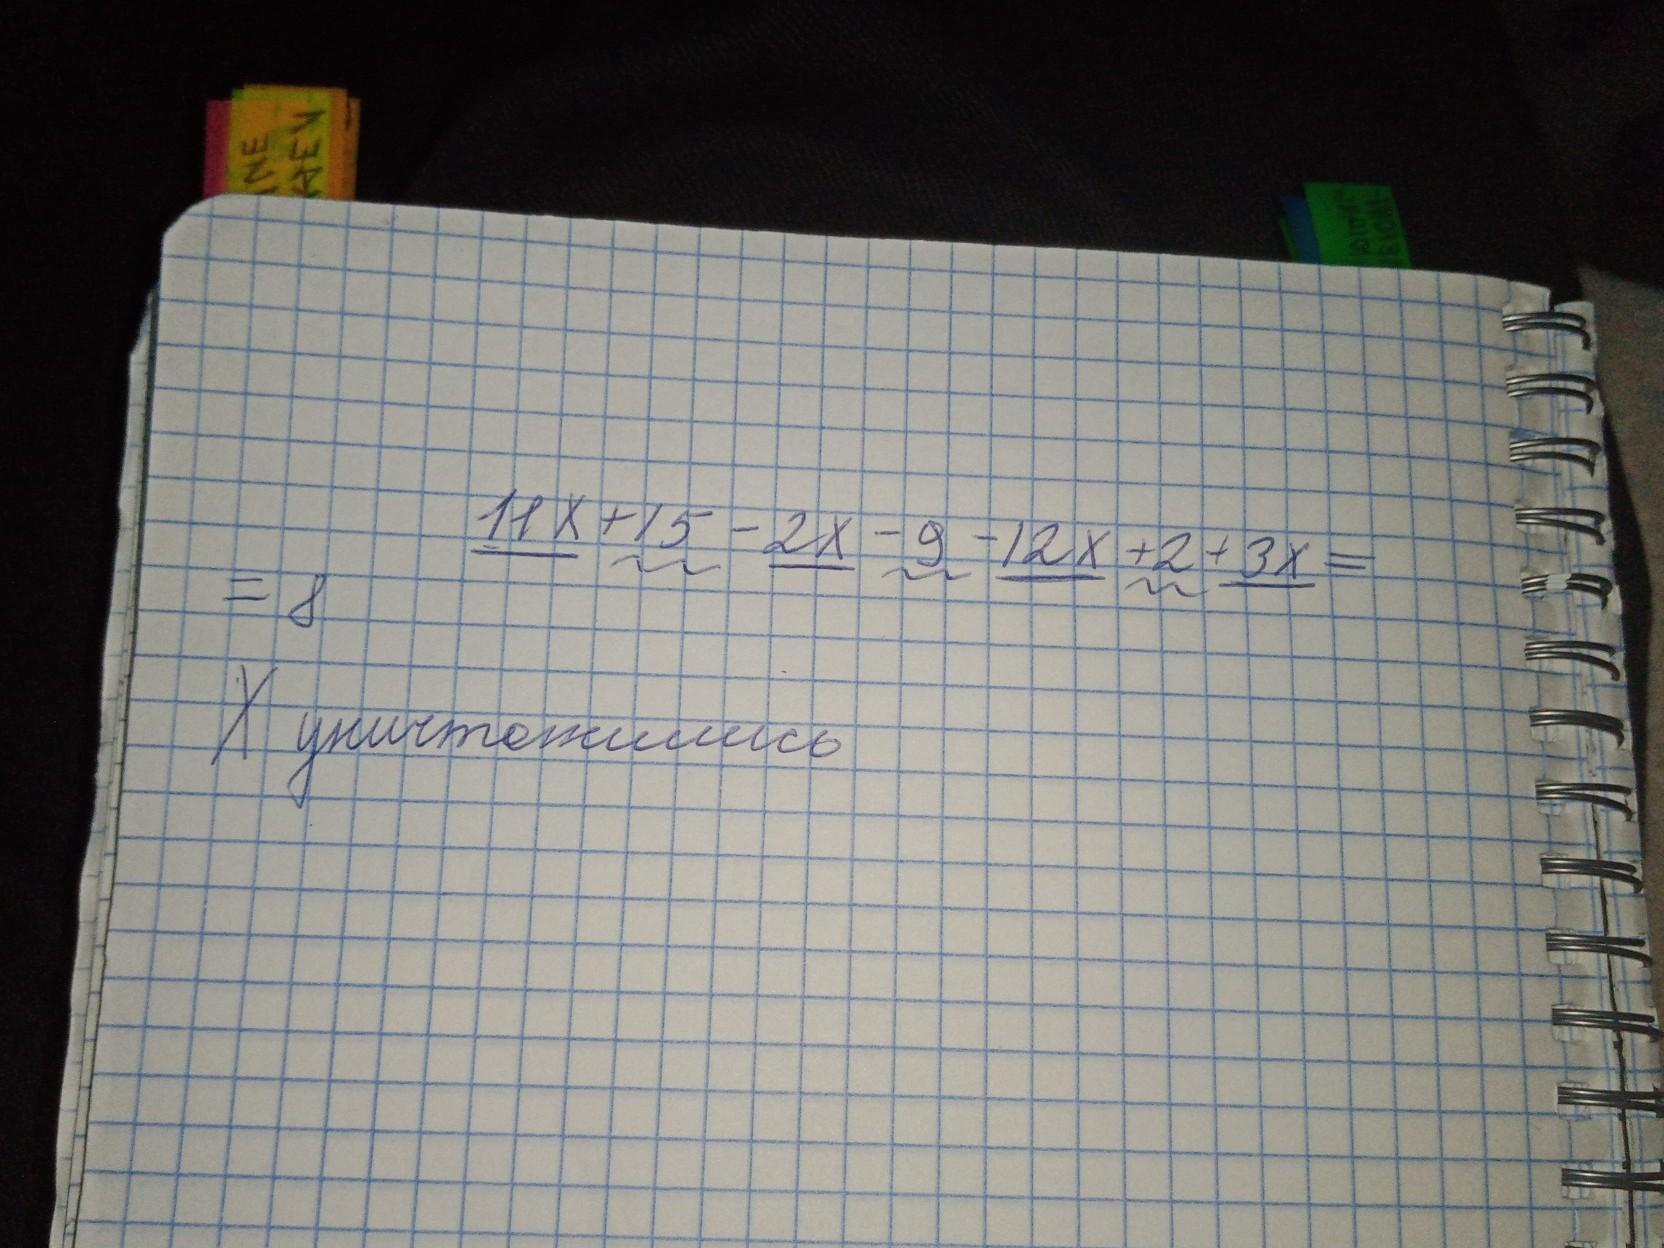 11x + 15 - 2x - 9 - 12x + 2 + 3x =
= 8
X уничтожились